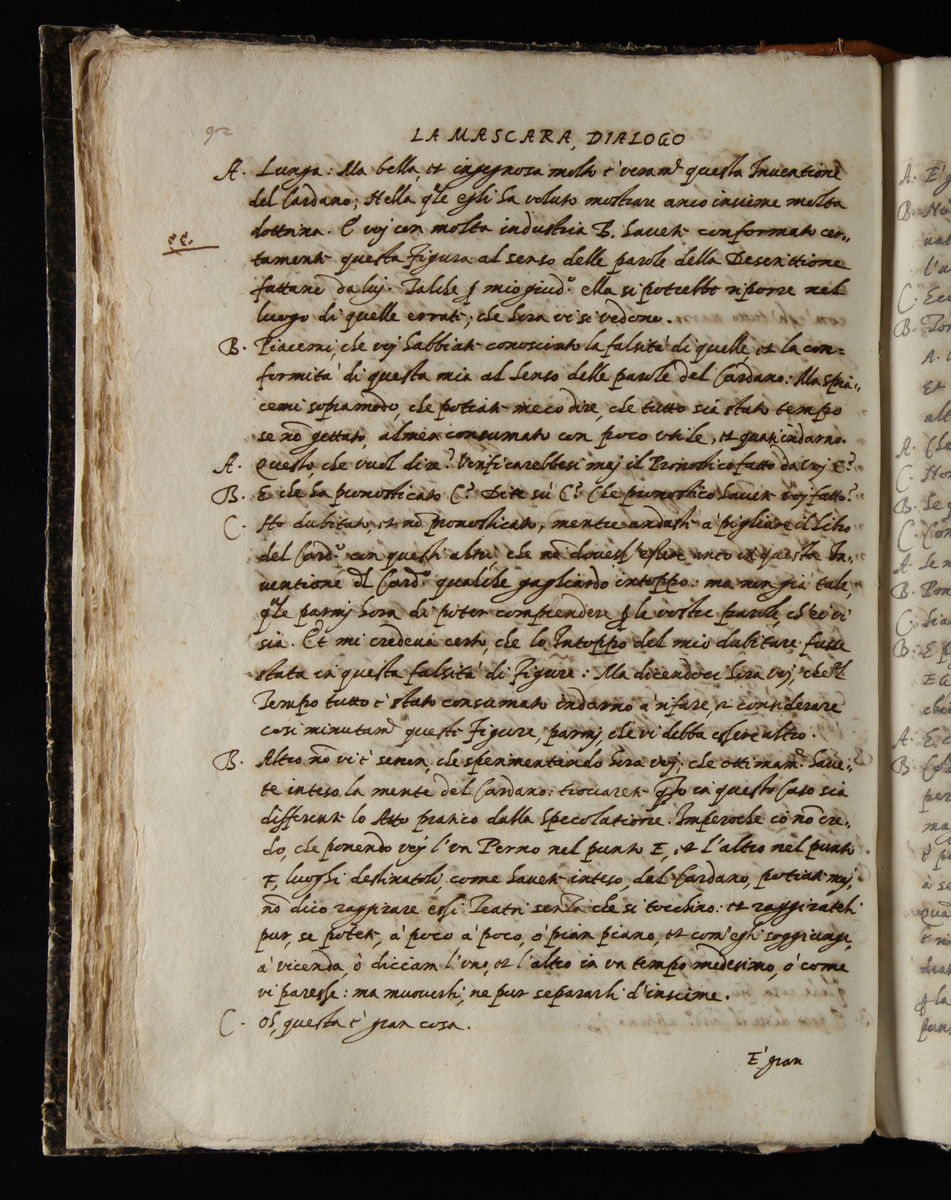 92
LA MASCARA, DIALOGO
A. Lunga: Ma bella, et ingegnosa molto è veram.te questa Inventione
del Cardano; Nella q.le egli ha voluto mostrare anco insieme molta
dottrina. E voj con molta industria B. havete conformato cer=
tamente questa Figura al senso delle parole della Descrittione
fattane da luj. Talche p mio giud.o ella si potrebbe riporre nel
luogo di quelle errati, che hora vi si vedono.
B. Piacemi, che voj habbiate conosciuto la falsità di quelle, et la con=
formità di questa mia al senso delle parole del Cardano: Ma spia=
cemi sopramodo, che potiate meco dire, che tutto sia stato tempo
se nõ gettato, almen consumato con poco utile, et quasi indarno.
A. Questo che vuol dire? Verificarebbesi mej il Pronostico fatto da voj C?
B. E che ha pronosticato C? Dite sù C? Che pronostico havete voj fatto?
C. Hò dubitato, et nõ pronosticato, mentre andaste à pigliare il libro
del Card.o con questi altri che nõ dovess' essere anco in questa In=
ventione del Card.o qualche gagliardo intoppo: ma non già tale,
q.le parmj hora di poter comprendere p le vostre parole, ch'ei vi
sia. Et mi credeva certo, che lo Intoppo del mio dubitare fusse
stata in questa falsità di Figure: Ma dicendoci hora voj, che'l
Tempo tutto è stato consumato indarno à rifare, et considerare
così minutam.te queste Figure, parmj, che vi debba essere altro.
B. Altro nõ vi è senon, che sperimentando hora voj, che ottimam.te have=
te inteso la mente del Cardano: trovarete q.to in questo Caso sia
differente lo Atto pratico dalla Specolatione. Imperoche io nõ cre=
do, che ponendo voj l'un Perno nel punto E, et l'altro nel punto
F, luoghi destinatoli, come havete inteso, dal Cardano, potiate maj,
nõ dico raggirare essi Teatri senza che si tocchino: et raggirateli
pur, se potete, à poco à poco, ò pian piano, et com'egli soggiunge,
à vicenda, ò dicciam l'uno, et l'altro in un tempo medesimo, ò come
vi paresse: ma muoverli, ne pur separarli d'insieme.
C. Oh, questa è gran cosa.
E' gran